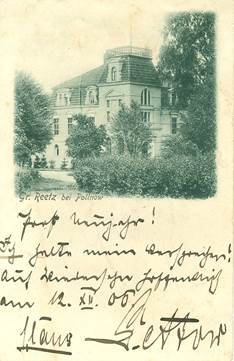 Gr. Reetz bei Pollnow
Prost Neujahr!
Ich halte mein Versprechen!
Auf Wiedersehn hoffentlich
am 12. XII. 06
Hans